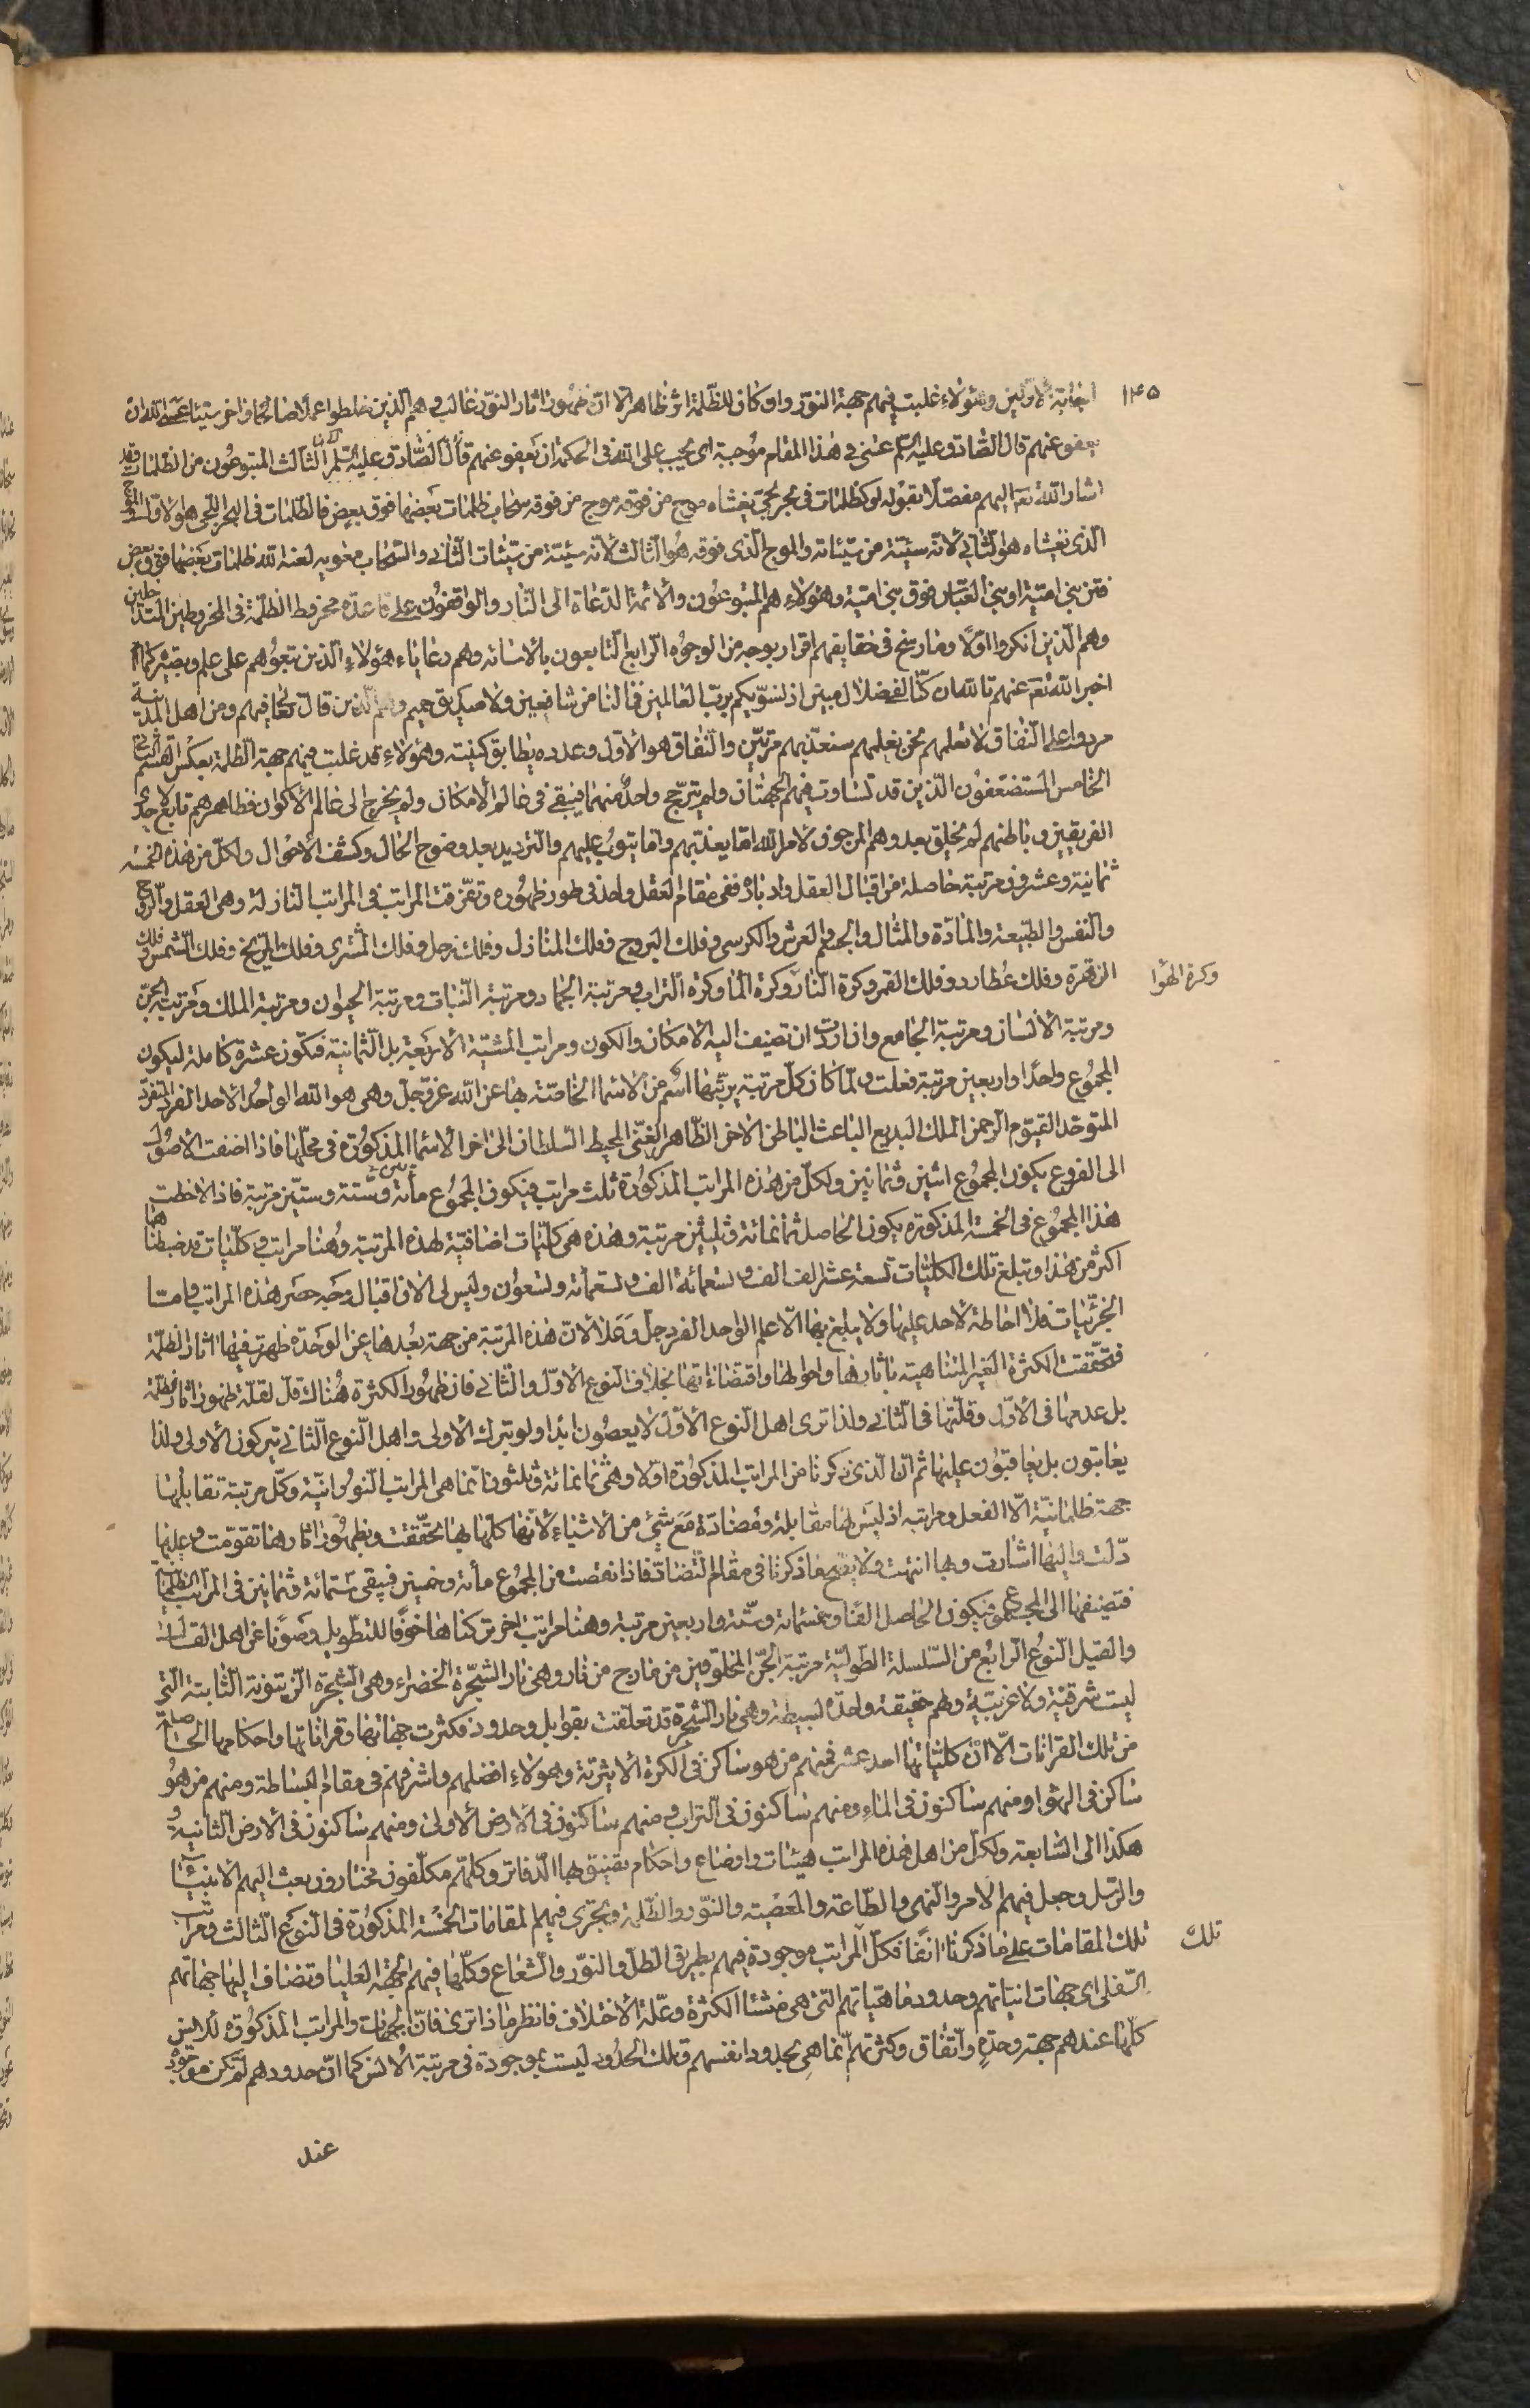 ١٤٥
اجابة الاولين وهؤلاء غلبت فيهم جهة النور واو كان للظلمة اثر ظاهر الا ان ظهور اثار النور غالب وهم الذين خلطوا عملا صالحا واخر سيئا عسى الله ان
يعفو عنهم قال الصادق عليه السلم عسى في هذا المقام موجبة اى يجب على الله في الحكمة ان يعفو عنهم قال الصادق عليه السلم الثالث المتبوعون من الظلمات وقد
اشار الله تعالى اليهم مفصلا بقوله او كظلمات في بحر لجي يغشاه موج من فوقه موج من فوقه سحاب ظلمات بعضها فوق بعض فالظلمات في البحر اللجي هو الاول والموج
الذى يغشاه هو الثاني لانه سيئة من سيئاته والموج الذى فوقه هو الثالث لانه سيئة من سيئات الثاني والسحاب معويه لعنه الله ظلمات بعضها فوق بعض
فتن بني امية او بني العباس فوق بني امية وهؤلاء هم المتبوعون والائمة الدعاة الى النار والواقفون على قاعدة مخروط الظلمة في المخروطين المتداخلين
وهم الذين انكروا اولا وما رسخ في حقايقهم اقرار بوجه من الوجوه الرابع التابعون بالاساءة وهم رعاياء هؤلاء الذين تبعوهم على علم وبصيرة كما
اخبر الله تعالى عنهم تالله ان كنا لفي ضلال مبين اذ نسويكم برب العالمين فما لنا من شافعين ولا صديق حميم وهم الذين قال تعالى فيهم ومن اهل المدينة
مردوا على النفاق لا تعلمهم نحن نعلمهم سنعذبهم مرتين والنفاق هو الاول وعدده يطابق كنيته وهؤلاء قد غلبت فيهم جهة الظلمة بعكس القسم الثاني
الخامس المستضعفون الذين قد تساوت فيهم الجهتان ولم تترجح واحد منهما فيبقى في عالم الامكان ولم يخرج الى عالم الاكوان فظاهرهم تابع لاحد
الفريقين وباطنهم لم يخلق بعد وهم المرجون لامر الله اما يعذبهم واما يتوب عليهم والترديد بعد وضوح الحال وكشف الاحوال ولكل من هذه الخمسة
ثمانية وعشرون مرتبة حاصلة من اقبال العقل وادباره ففي مقام العقل واحد في طور ظهوره وتفرقت المراتب في المراتب النازلة وهي العقل والروح
والنفس والطبيعة والمادة والمثال والجسم والعرش والكرسي وفلك البروج وفلك المنازل وفلك زحل وفلك المشترى وفلك المريخ وفلك الشمس وفلك
الزهرة وفلك عطارد وفلك القمر وكرة النار وكرة الماء وكرة التراب ومرتبة الجماد ومرتبة النبات ومرتبة الحيوان ومرتبة الملك ومرتبة الجن
وكرة الهوا
ومرتبة الانسان ومرتبة الجامع وان اردت ان تضيف اليه الامكان والكون ومراتب المشية الاربعة بل الثمانية فتكون عشرة كاملة ليكون
المجموع واحدا واربعين مرتبة فعلت ولما كان كل مرتبة يربيها اسم من الاسماء الخاصة بها عن الله عز وجل وهي هو الله الواحد الاحد الفرد المتفرد
المتوحد القيوم الرحمن الملك البديع الباعث الباطن الاخر الظاهر الغني المحيط السلطان الى اخر الاسماء المذكورة في محلها فاذا اضفت الاصول
الى الفروع يكون المجموع اثنين وثمانين ولكل من هذه المراتب المذكورة ثلث مراتب فيكون المجموع مائة وستة وستين مرتبة فاذا لاحظت
هذا المجموع في الخمسة المذكورة يكون الحاصل ثمانمائة وثلثين مرتبة وهذه هي كليات اضافية لهذه المرتبة وهنا مراتب وكليات قد ضبطناها
اكثر من هذا وتبلغ تلك الكليات تسعة عشر الف الف وتسعمائة الف وتسعمائة وتسعون وليس لي الان اقبال وجه حصر هذه المراتب واما
الجزئيات فلا احاطة لاحد عليها ولا يبلغ بها الا علم الواحد الفرد جل وعلا لان هذه المرتبة من جهة بعدها عن الوحدة ظهرت فيها اثار الظلمة
فتحققت الكثرة الغير المتناهية باثارها واحوالها واقتضاءاتها بخلاف النوع الاول والثاني فان ظهور الكثرة هناك قل لقلة ظهور اثار الظلمة
بل عدمها في الاول وقلتها في الثاني ولذا ترى اهل النوع الاول لا يعصون ابدا ولو بترك الاولى واهل النوع الثاني يتركون الاولى ولذا
يعاتبون بل يعاقبون عليها ثم ان الذى ذكرنا من المراتب المذكورة اولا وهي ثمانمائة وثلثون انما هي المراتب النورانية وكل مرتبة تقابلها
جهة ظلمانية الا الفعل ومراتبه اذ ليس لها مقابلة ومضادة مع شئ من الاشياء لانها كلها بها تحققت وبظهور اثارها تقومت وعليها
دلت واليها اشارت وبها انتهت ولا يصح ما ذكرنا في مقام التضاد فاذا نقصت من المجموع مائة وخمسين فيبقى ستمائة وثمانين في المراتب الظلمانية
فتضيفها الى المجموع فيكون الحاصل الفا وخمسمائة وستة واربعين مرتبة وهنا مراتب اخر تركناها خوفا للتطويل وصونا عن اهل القال
والقيل النوع الرابع من السلسلة الطولية مرتبة الجن المخلوقين من مارج من نار وهي نار الشجرة الخضراء وهي الشجرة الزيتونة الثابتة التي
ليست شرقية ولا غربية ولهم حقيقة واحدة بسيطة وهي نار الشجرة قد تعلقت بقوابل وحدود فكثرت جهاتها وقراناتها واحكامها الحاصلة
من تلك القرانات الا ان كلياتها احد عشر فمنهم من هو ساكن في الكرة الاثيرية وهؤلاء افضلهم واشرفهم في مقام البساطة ومنهم من هو
ساكن في الهواء ومنهم ساكنون في الماء ومنهم ساكنون في التراب ومنهم ساكنون في الارض الاولى ومنهم ساكنون في الارض الثانية و
هكذا الى السابعة ولكل من اهل هذه المراتب هيئات واوضاع واحكام يضيق بها الدفاتر وكلهم مكلفون مختارون بعث اليهم الانبياء
والرسل وجعل فيهم الامر والنهى والطاعة والمعصية والنور والظلمة ويجرى فيهم المقامات الخمسة المذكورة في النوع الثالث ومراتب
تلك المقامات على ما ذكرنا انفا فكل المراتب موجودة فيهم بطريق الظل والنور والشعاع وكلها فيهم الجهة العليا وتضاف اليها جهاتهم
تلك
السفلى اى جهات انياتهم وحدود ماهياتهم التي هي منشأ الكثرة وعلة الاختلاف فانظر ماذا ترى فان الجهات والمراتب المذكورة للانس
كلها عندهم جهة وحدة واتفاق وكثرتهم انما هي بحدود انفسهم وتلك الحدود ليست بموجودة في مرتبة الانس كما ان حدودهم لم تكن موجودة
عند